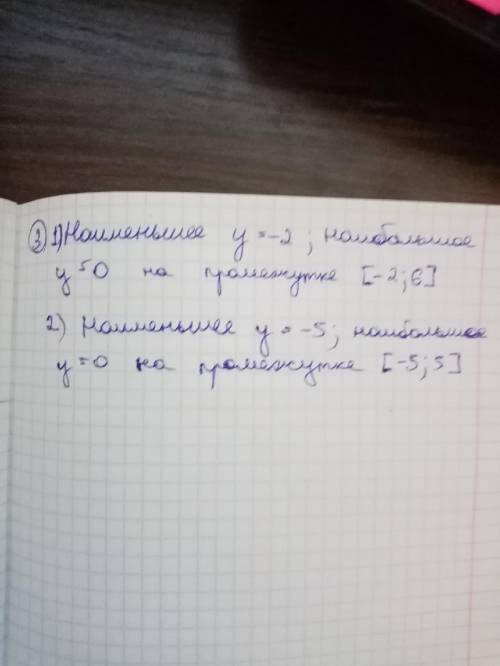 ③ 1) Наименьшее y = -2 ; наибольшое
y = 0 на промежутке [-2; 6]
2) Наименьшее y = -5; наибольшое
y = 0 на промежутке [-5; 5]